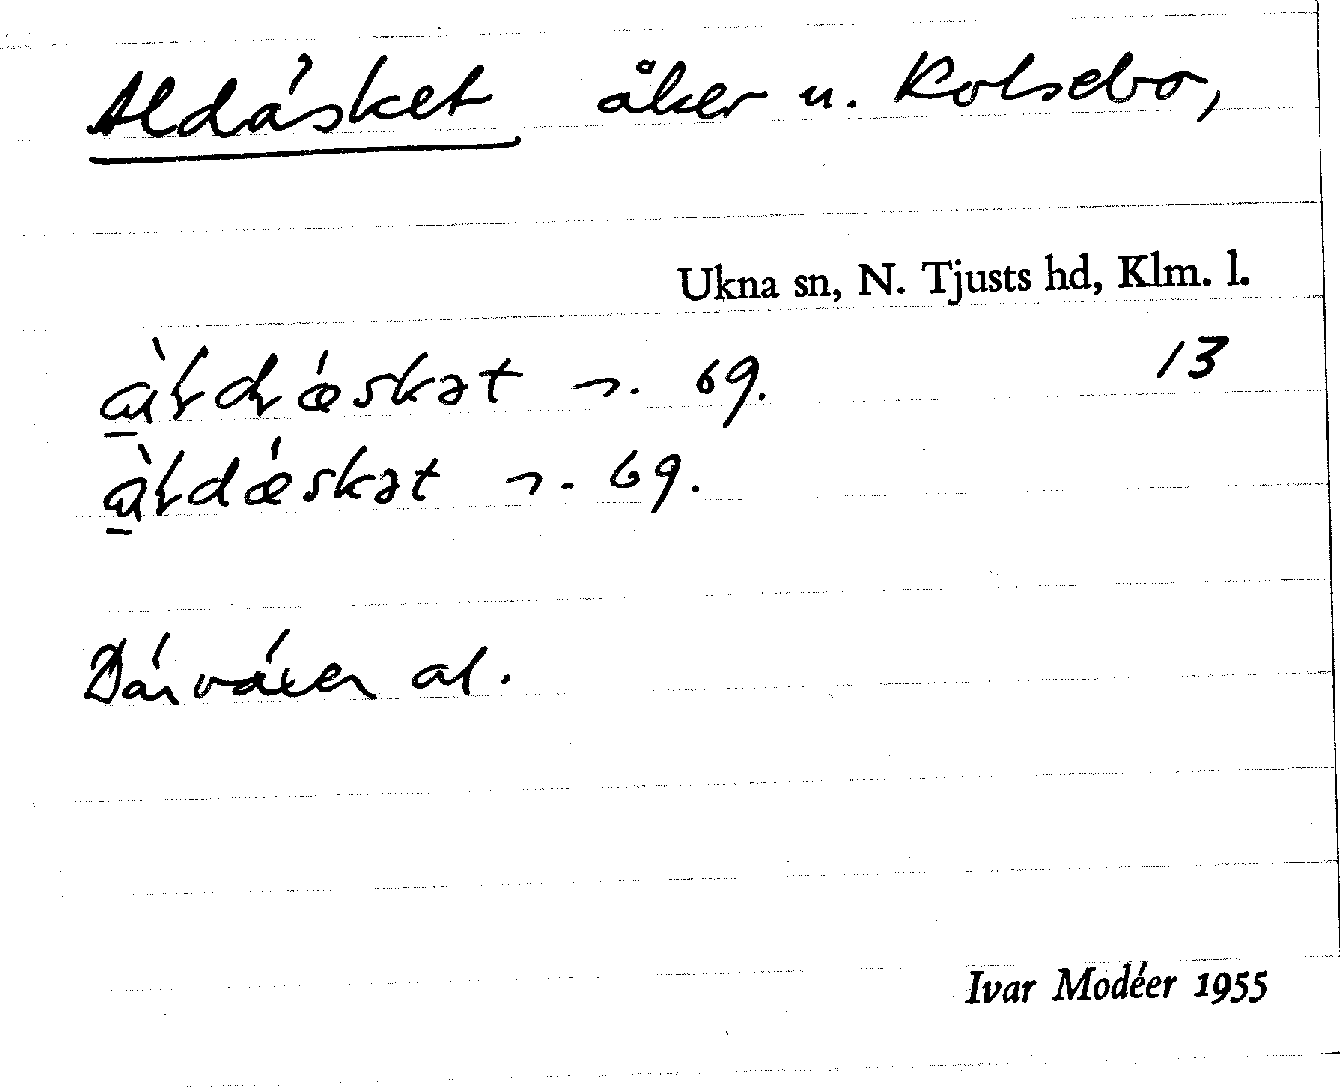 Aldásket åker u. Kolsebo,
Ukna sn, N. Tjusts hd, Klm. l.
13
n. 69.
n. 69.
Där växer al.
Ivar Modéer 1955